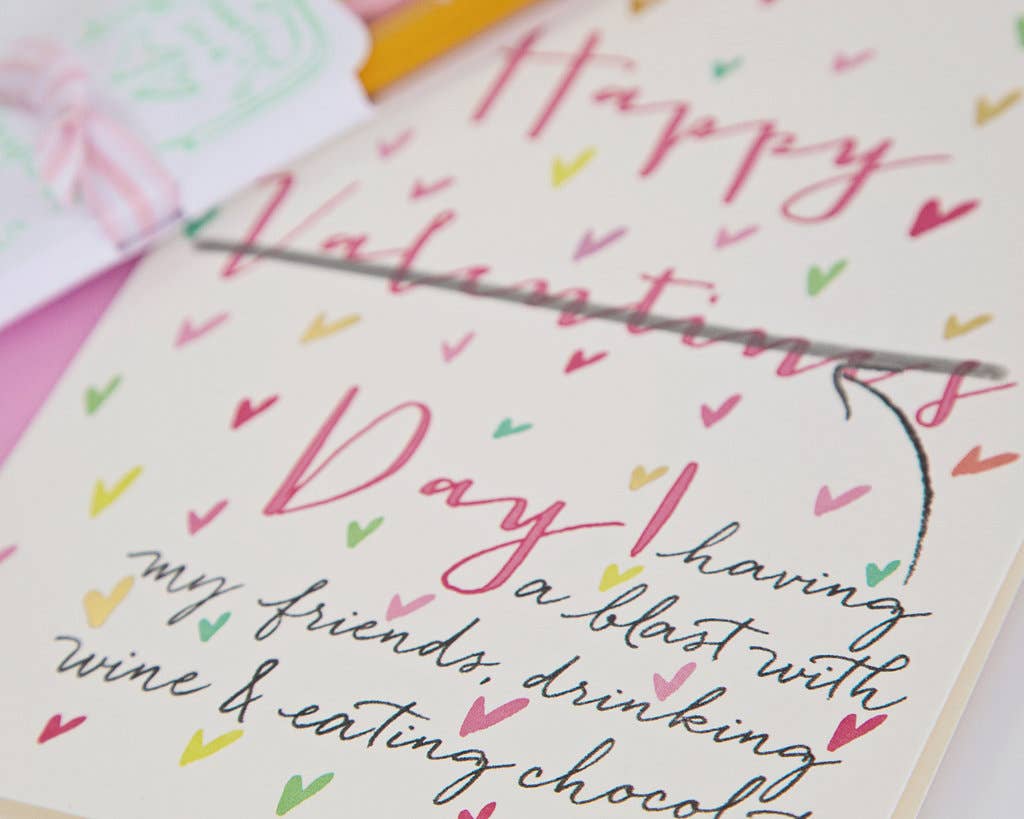 Happy
Valentines
Day!
having
a blast with
my friends, drinking
wine & eating chocol